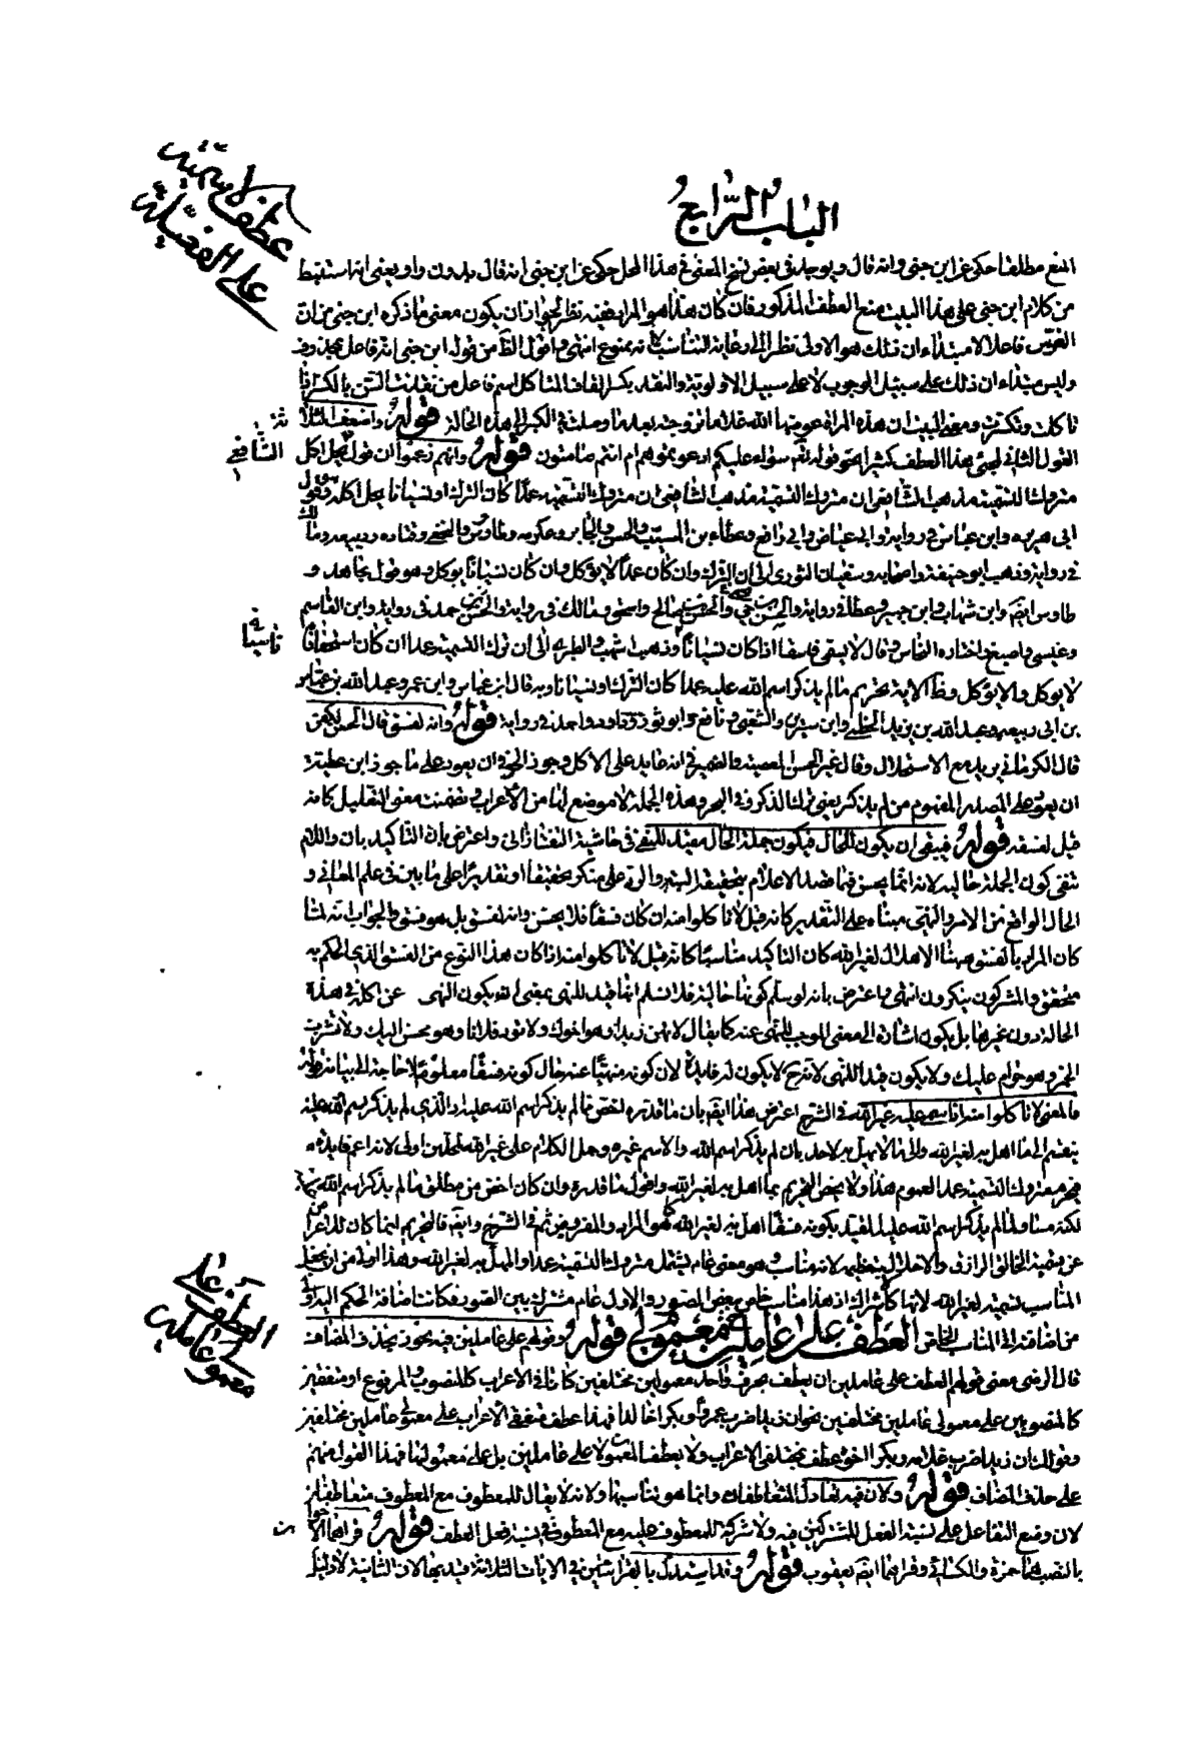 الباب الرابع
عطف الاسمية
على الفعلية
المنع مطلقا حكى عن ابن جنى وانه قال ويوجد فى بعض نسخ المغنى فى هذا المحل حكى عن ابن جنى انه قال بدون واو يعنى انه استنبط
من كلام ابن جنى على هذا البيت منع العطف المذكور فان كان هذا هو المراد ففيه نظر لجواز ان يكون معنى ما ذكره ابن جنى من ان
الضرس فاعلا لا مبتداء ان ذلك هو الاولى نظر الى رعاية التناسب لا انه ممنوع انتهى واقول الظ من قوله ابن جنى انه فاعل بمحذوف
وليس مبتداء ان ذلك على سبيل الوجوب لا على سبيل الاولوية والنقد بكسر القاف المتاكل اسم فاعل من نقدت السن بالكسر اذا
تاكلت وتكسرت ومعنى البيت ان هذه المراة عوضها الله غلاما تزوجته بعد ما وصلت فى الكبر الى هذه الحالة قوله واضعف الثلاثة
القول الثانى لمجئ هذا العطف كثيرا نحو قوله تعم سواء عليكم ادعوتموهم ام انتم صامتون قوله وانهم زعموا ان قول بحل اكل الشافعى
متروك التسمية مذهب الشافعى ان متروك التسمية عمدا كان الترك او نسيانا يحل اكله وهو قول
ابى هريرة وابن عباس فى رواية وابى عياض وابى رافع وعطاء بن المسيب والحسن وجابر وعكرمة وطاوس والنخعى وقتادة وربيعة ومالك
فى رواية وذهب ابو حنيفة واصحابه وسفيان الثورى الى ان الترك وان كان عمدا لا يؤكل وان كان نسيانا يوكل وهو قول مجاهد و
طاوس ايضا وابن شهاب وابن جبير وعطا فى رواية والحسن بن حى والحسن بن صالح واسحق ومالك فى رواية والحسن بن حمد فى رواية وابن القاسم
وعيسى واصبغ واختاره النحاس وقال لا يسمى فاسقا اذا كان نسيانا وذهب اشهب والطبرى الى ان ترك التسمية عمدا ان كان استخفافا ناسيا
لا يوكل والا يؤكل وظ الاية تحريم ما لم يذكر اسم الله عليه عمدا كان الترك او نسيانا وبه قال ابن عباس وابن عمر وعبد الله بن عياش
بن ابى ربيعة وعبد الله بن يزيد الخطمى وابن سيرين والشعبى ونافع وابو ثور وداود واحمد فى رواية قوله وانه لفسق قال
قال الكرمانى يريد مع الاستحلال وقال غير الحسن لمعصية والضمير فى انه عايد على الاكل وجوز الحوفى ان يعود على ما وجوز ابن عطية
ان يعود على المصدر المفهوم من لم يذكر يعنى ترك الذكر وفى البحر وهذه الجملة لا موضع لها من الاعراب وتضمنت معنى التعليل كانه
قيل لفسقه قوله فبقى ان يكون للحال فيكون جملة الحال مقيدة للنهى فى حاشية التفتازانى واعترض بان التاكيد بان واللام
تنفى كون الجملة حالية لانه انما يحسن فيما قصد الاعلام بتحقيقه البتة والرد على منكر تحقيقا او تقديرا على ما بين فى علم المعانى و
الحال الواقع فى الامر والنهى مبناه على التقدير كانه قيل لا تاكلوا منه ان كان فسقا فلا يحسن وانه لفسق بل هو فسق والجواب انه لما
كان المراد بالفسق ههنا الاهلال لغير الله كان التاكيد مناسبا كانه قيل لا تاكلوا منه اذا كان هذا النوع من الفسق الذى الحكم به
متحقق والمشركون ينكرون انتهى واعترض بانه لو سلم كونها حالية فلا نسلم انها قيد للنهى بمعنى انه يكون النهى عن اكله فى هذه
الحالة دون غيرها بل يكون اشارة الى معنى الموجب للنهى عنه كما يقال لا تهن زيدا وهو اخوك ولا تؤذ فلانا وهو محسن اليك ولا تشرب
الخمر وهو حرام عليك ولا يكون قيدا للنهى لا يكون له فايدة لان كونه منهيا عنه حال كونه فسقا معلوم لا حاجة الى بيانه قوله
فالمعنى لا تاكلوا منه اذا سمى عليه غير الله فى الشرح اعترض هذا ايضا بان ما قدره اخص مما لم يذكر اسم الله عليه اذ الذى لم يذكر اسم الله عليه
ينقسم الى ما اهل به لغير الله والى ما لا يهل به لاحد بان لم يذكر اسم الله والاسم غيره وحمل الكلام على غير الله اولى لانه اعم فايدة
متروك التسمية عمدا لعموم هذا ولا يخص التحريم بما اهل به لغير الله واقول ما قدره وان كان اخص من مطلق ما لم يذكر اسم الله عليه
لكنه مساو لما لم يذكر اسم الله عليه المقيد بكونه فسقا اهل به لغير الله وهو المراد والمفروض ثم فى الشرح وايضا فالتحريم انما كان للاعراض
عن تسمية الخالق الرازق والاخلال بتعظيمه لانه مناسب وهو معنى عام يشمل متروك التسمية عمدا والمهل به لغير الله وهذا اولى من ان يجعل
المناسب تسمية لغير الله لانها كاشراك اذ هذا مناسب خاص ببعض الصور والاول عام مشترك بين الصور فكانت اضافة الحكم اليه اولى
من اضافته الى المناسب الخاص العطف على عاملين معمولى قوله وقولهم على عاملين فيه تجوز بحذف المضاف
العطف على
معمولى عاملين
قال الرضى معنى قولهم العطف على عاملين ان يعطف بحرف واحد معمولين مختلفين كانا فى الاعراب كالمنصوب والمرفوع او متفقين
كالمنصوبين على معمولى عاملين مختلفين نحو ان زيدا ضرب عمرو وبكرا خالدا فهذا عطف متفقى الاعراب على معمولى عاملين مختلفين
وقولك ان زيدا ضرب غلامه وبكرا اخوه عطف مختلفى الاعراب ولا يعطف المعمولان على عاملين بل على معموليهما فهذا القول منهم
على حذف المضاف قوله ولان فيه تعادل المتعاطفات وانما هو تناسبها ولانه لا يقال للمعطوف مع المعطوف متعاطفان
لان وضع التفاعل على نسبة الفعل للمشتركين فيه ولا شركة للمعطوف عليه مع المعطوف فى نسبة فعل العطف قوله قراهما الاخوان
بالنصب هما حمزة والكسائى وقراهما ايضا يعقوب قوله وقد استدل بالقراءتين فى الايات الثلاثة قيد بها لان الثانية لا دليل